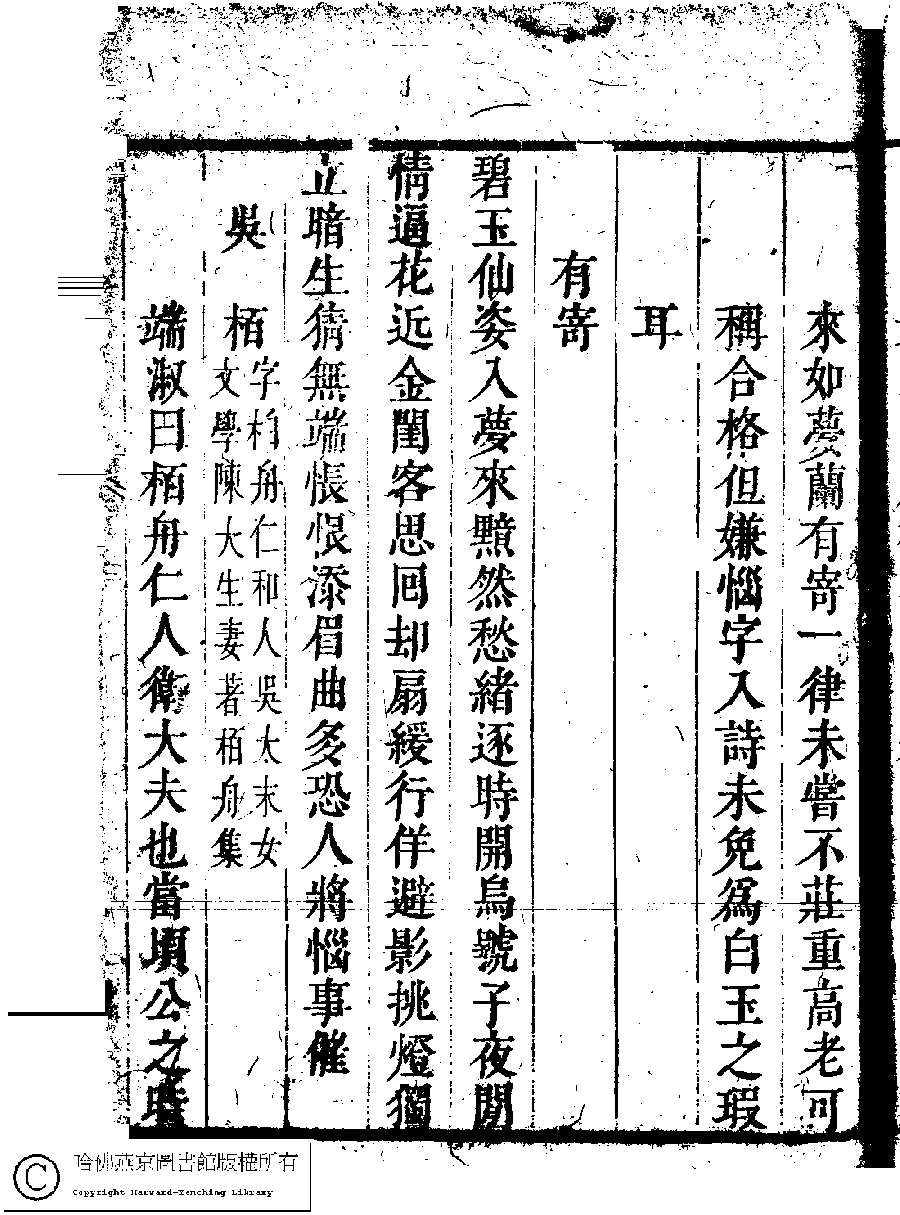 來如夢蘭有寄一律未嘗不莊重高老可
稱合格但嫌惱字入詩未免爲白玉之瑕
耳
有寄
碧玉仙姿入夢來黯然愁緒逐時開烏號子夜閒
情逼花近金閨客思囘却扇緩行佯避影挑燈獨
立暗生猜無端悵恨添眉曲多恐人將惱事催
吳栢
字栢舟仁和人吳太末女
文學陳大生妻著栢舟集
端淑曰栢舟仁人衛大夫也當頃公之時
哈佛燕京圖書館版權所有
Copyright Harvard-Yenching Library